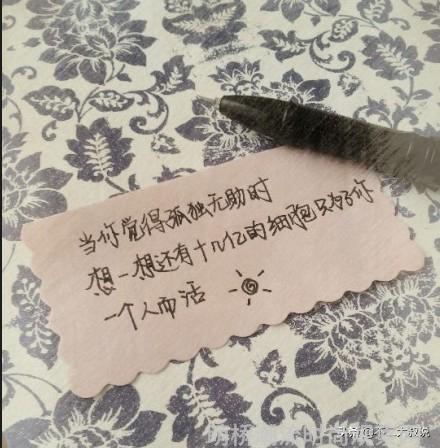 当你觉得孤独无助时
想一想还有十几亿的细胞只为了你
一个人而活
头条@不二大叔说